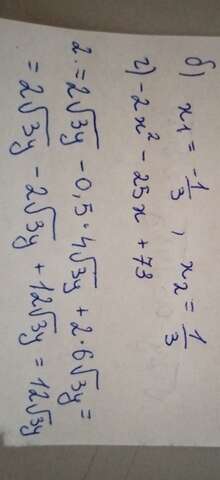 б) x1 = -1/3, x2 = 1/3
г) -2x² - 25x + 73
2. = 2√3y - 0,5 · 4√3y + 2 · 6√3y =
= 2√3y - 2√3y + 12√3y = 12√3y